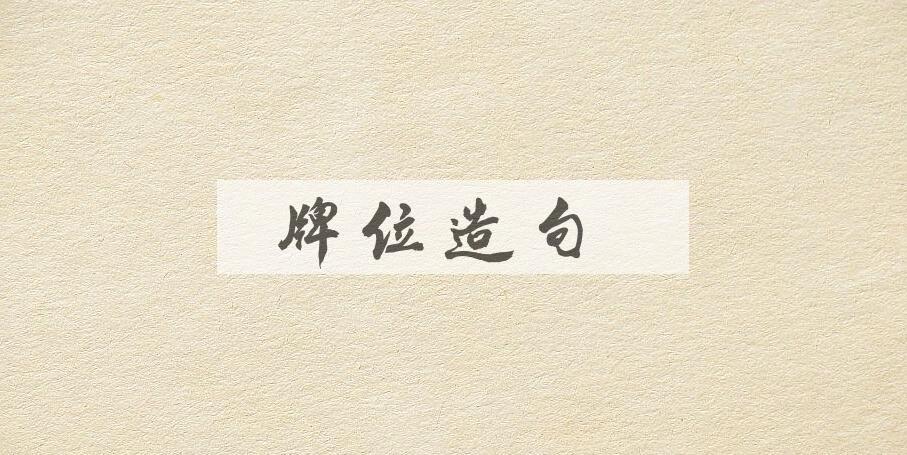 牌位造句